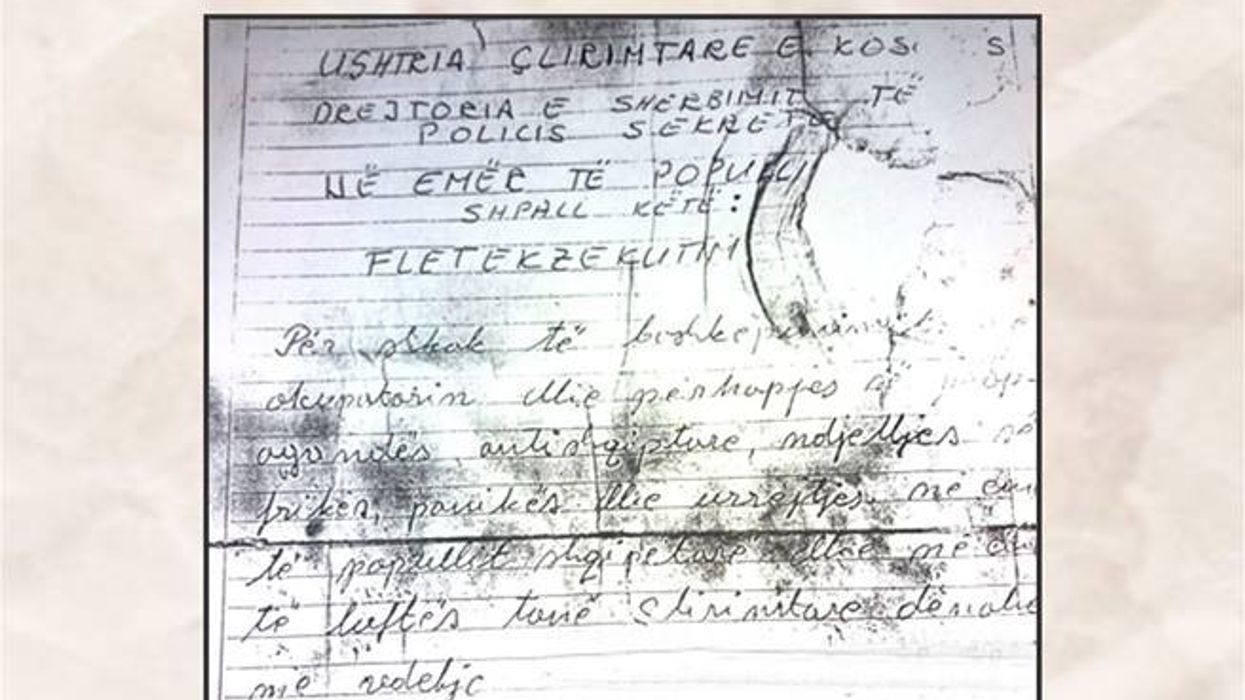 USHTRIA ÇLIRIMTARE E KOS S
DREJTORIA E SHËRBIMIT TË
POLICIS SEKRETE
NË EMËR TË POPULLI
SHPALL KËTË:
FLETEKZEKUTIMI
Për shkak të
okupatorin dhe përhapjes së prop-
agandës antishqiptare, ndjelljes së
frikës, panikës dhe urrejtjes në em
të popullit shqipëtarë dhe në
të luftës tonë çlirimtare
me vdekje